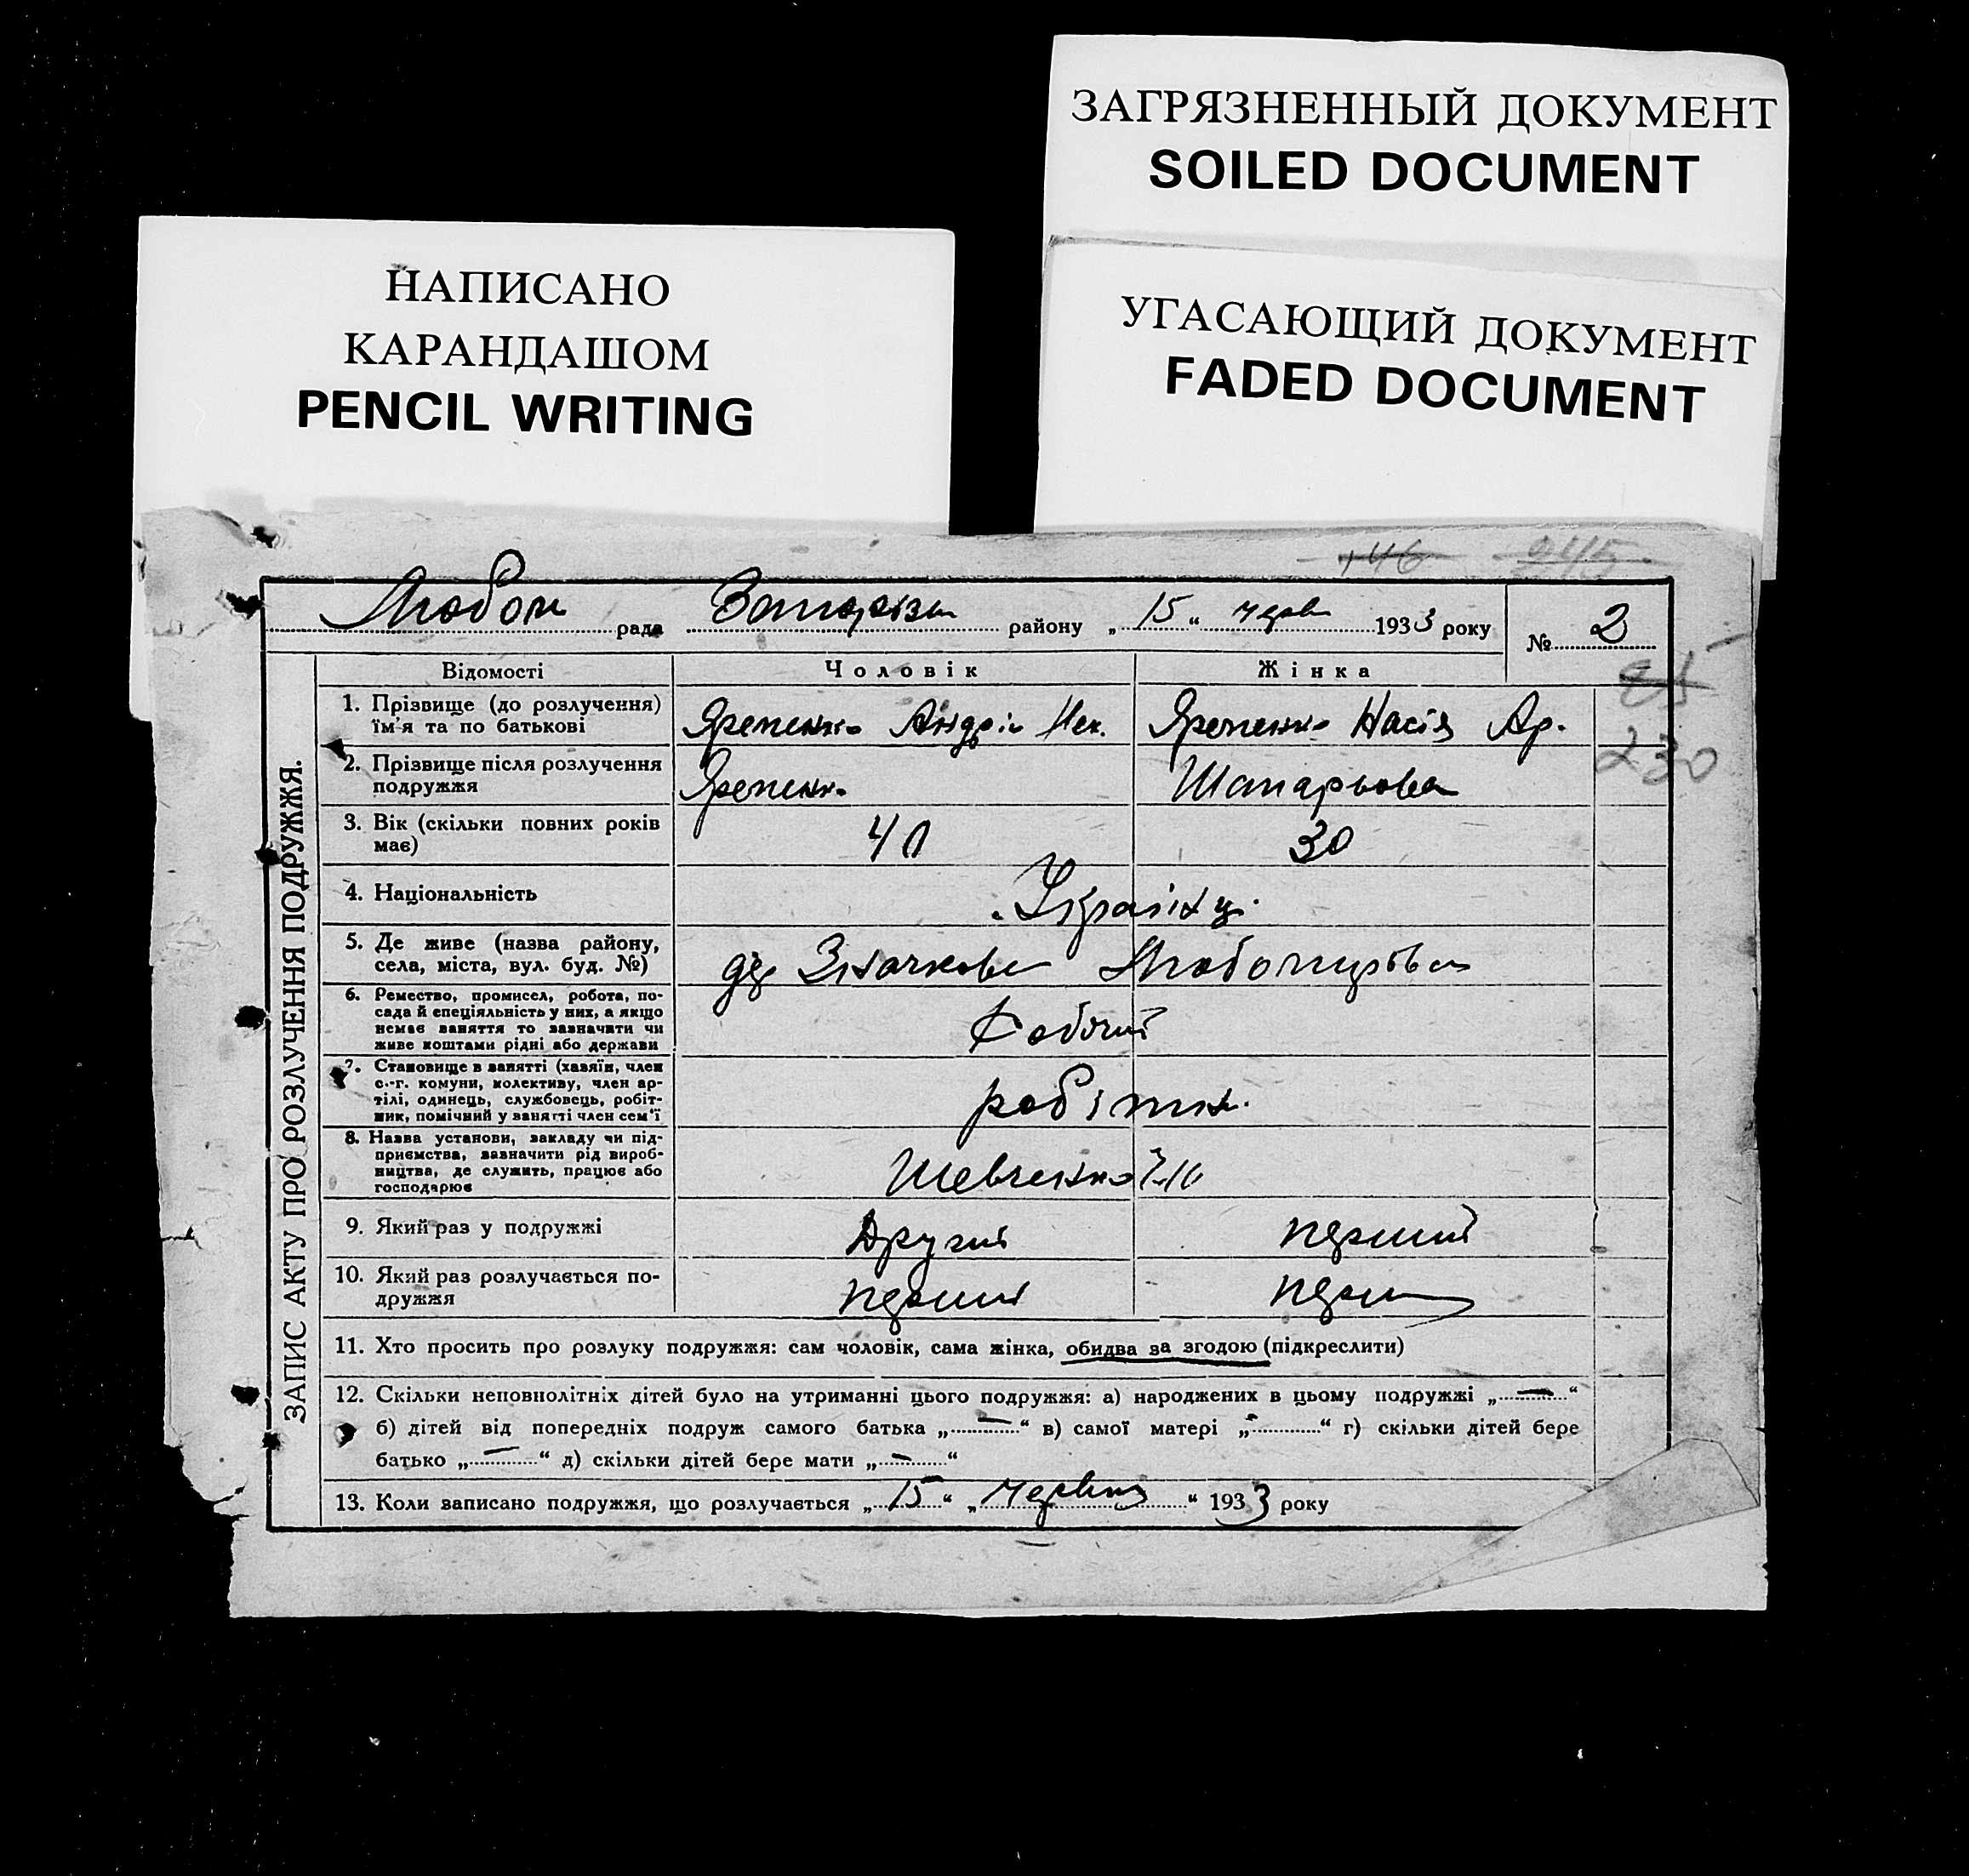 ЗАГРЯЗНЕННЫЙ ДОКУМЕНТ
SOILED DOCUMENT
НАПИСАНО
КАРАНДАШОМ
PENCIL WRITING
УГАСАЮЩИЙ ДОКУМЕНТ
FADED DOCUMENT
146 245
рада району „15“ черв 1933 року № 2
85
230
ЗАПИС АКТУ ПРО РОЗЛУЧЕННЯ ПОДРУЖЖЯ.
Відомості Чоловік Жінка
1. Прізвище (до розлучення)
їм'я та по батькові
Яременко Андрій Яременко Насія Ар.
2. Прізвище після розлучення
подружжя
Яременк
3. Вік (скільки повних років
має)
40 30
4. Національність
Українц.
5. Де живе (назва району,
села, міста, вул. буд. №)
6. Ремество, промисел, робота, по-
сада й спеціяльність у них, а якщо
немає заняття то зазначити чи
живе коштами рідні або держави
Робочий
7. Становище в занятті (хазяїн, член
с.-г. комуни, колективу, член ар-
тілі, одинець, службовець, робіт-
ник, помічний у занятті член сем'ї
робітн.
8. Назва установи, закладу чи під-
приємства, зазначити рід вироб-
ництва, де служить, працює або
господарює
Шевченко
9. Який раз у подружжі
Другий перший
10. Який раз розлучається по-
дружжя
перший перш
11. Хто просить про розлуку подружжя: сам чоловік, сама жінка, обидва за згодою (підкреслити)
12. Скільки неповнолітніх дітей було на утриманні цього подружжя: а) народжених в цьому подружжі „—“
б) дітей від попередніх подруж самого батька „—“ в) самої матері „—“ г) скільки дітей бере
батько „—“ д) скільки дітей бере мати „—“
13. Коли записано подружжя, що розлучається „15“ „червня“ 1933 року